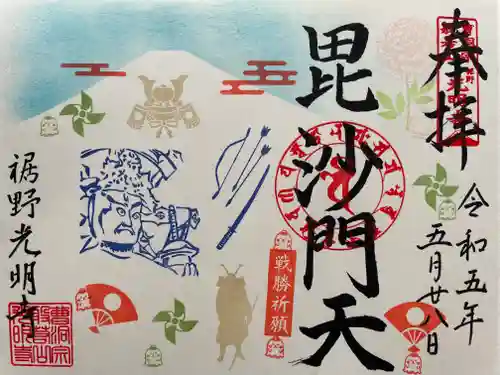 奉拝
令和五年
五月廿八日
毘沙門天
戦勝祈願
裾野光明寺